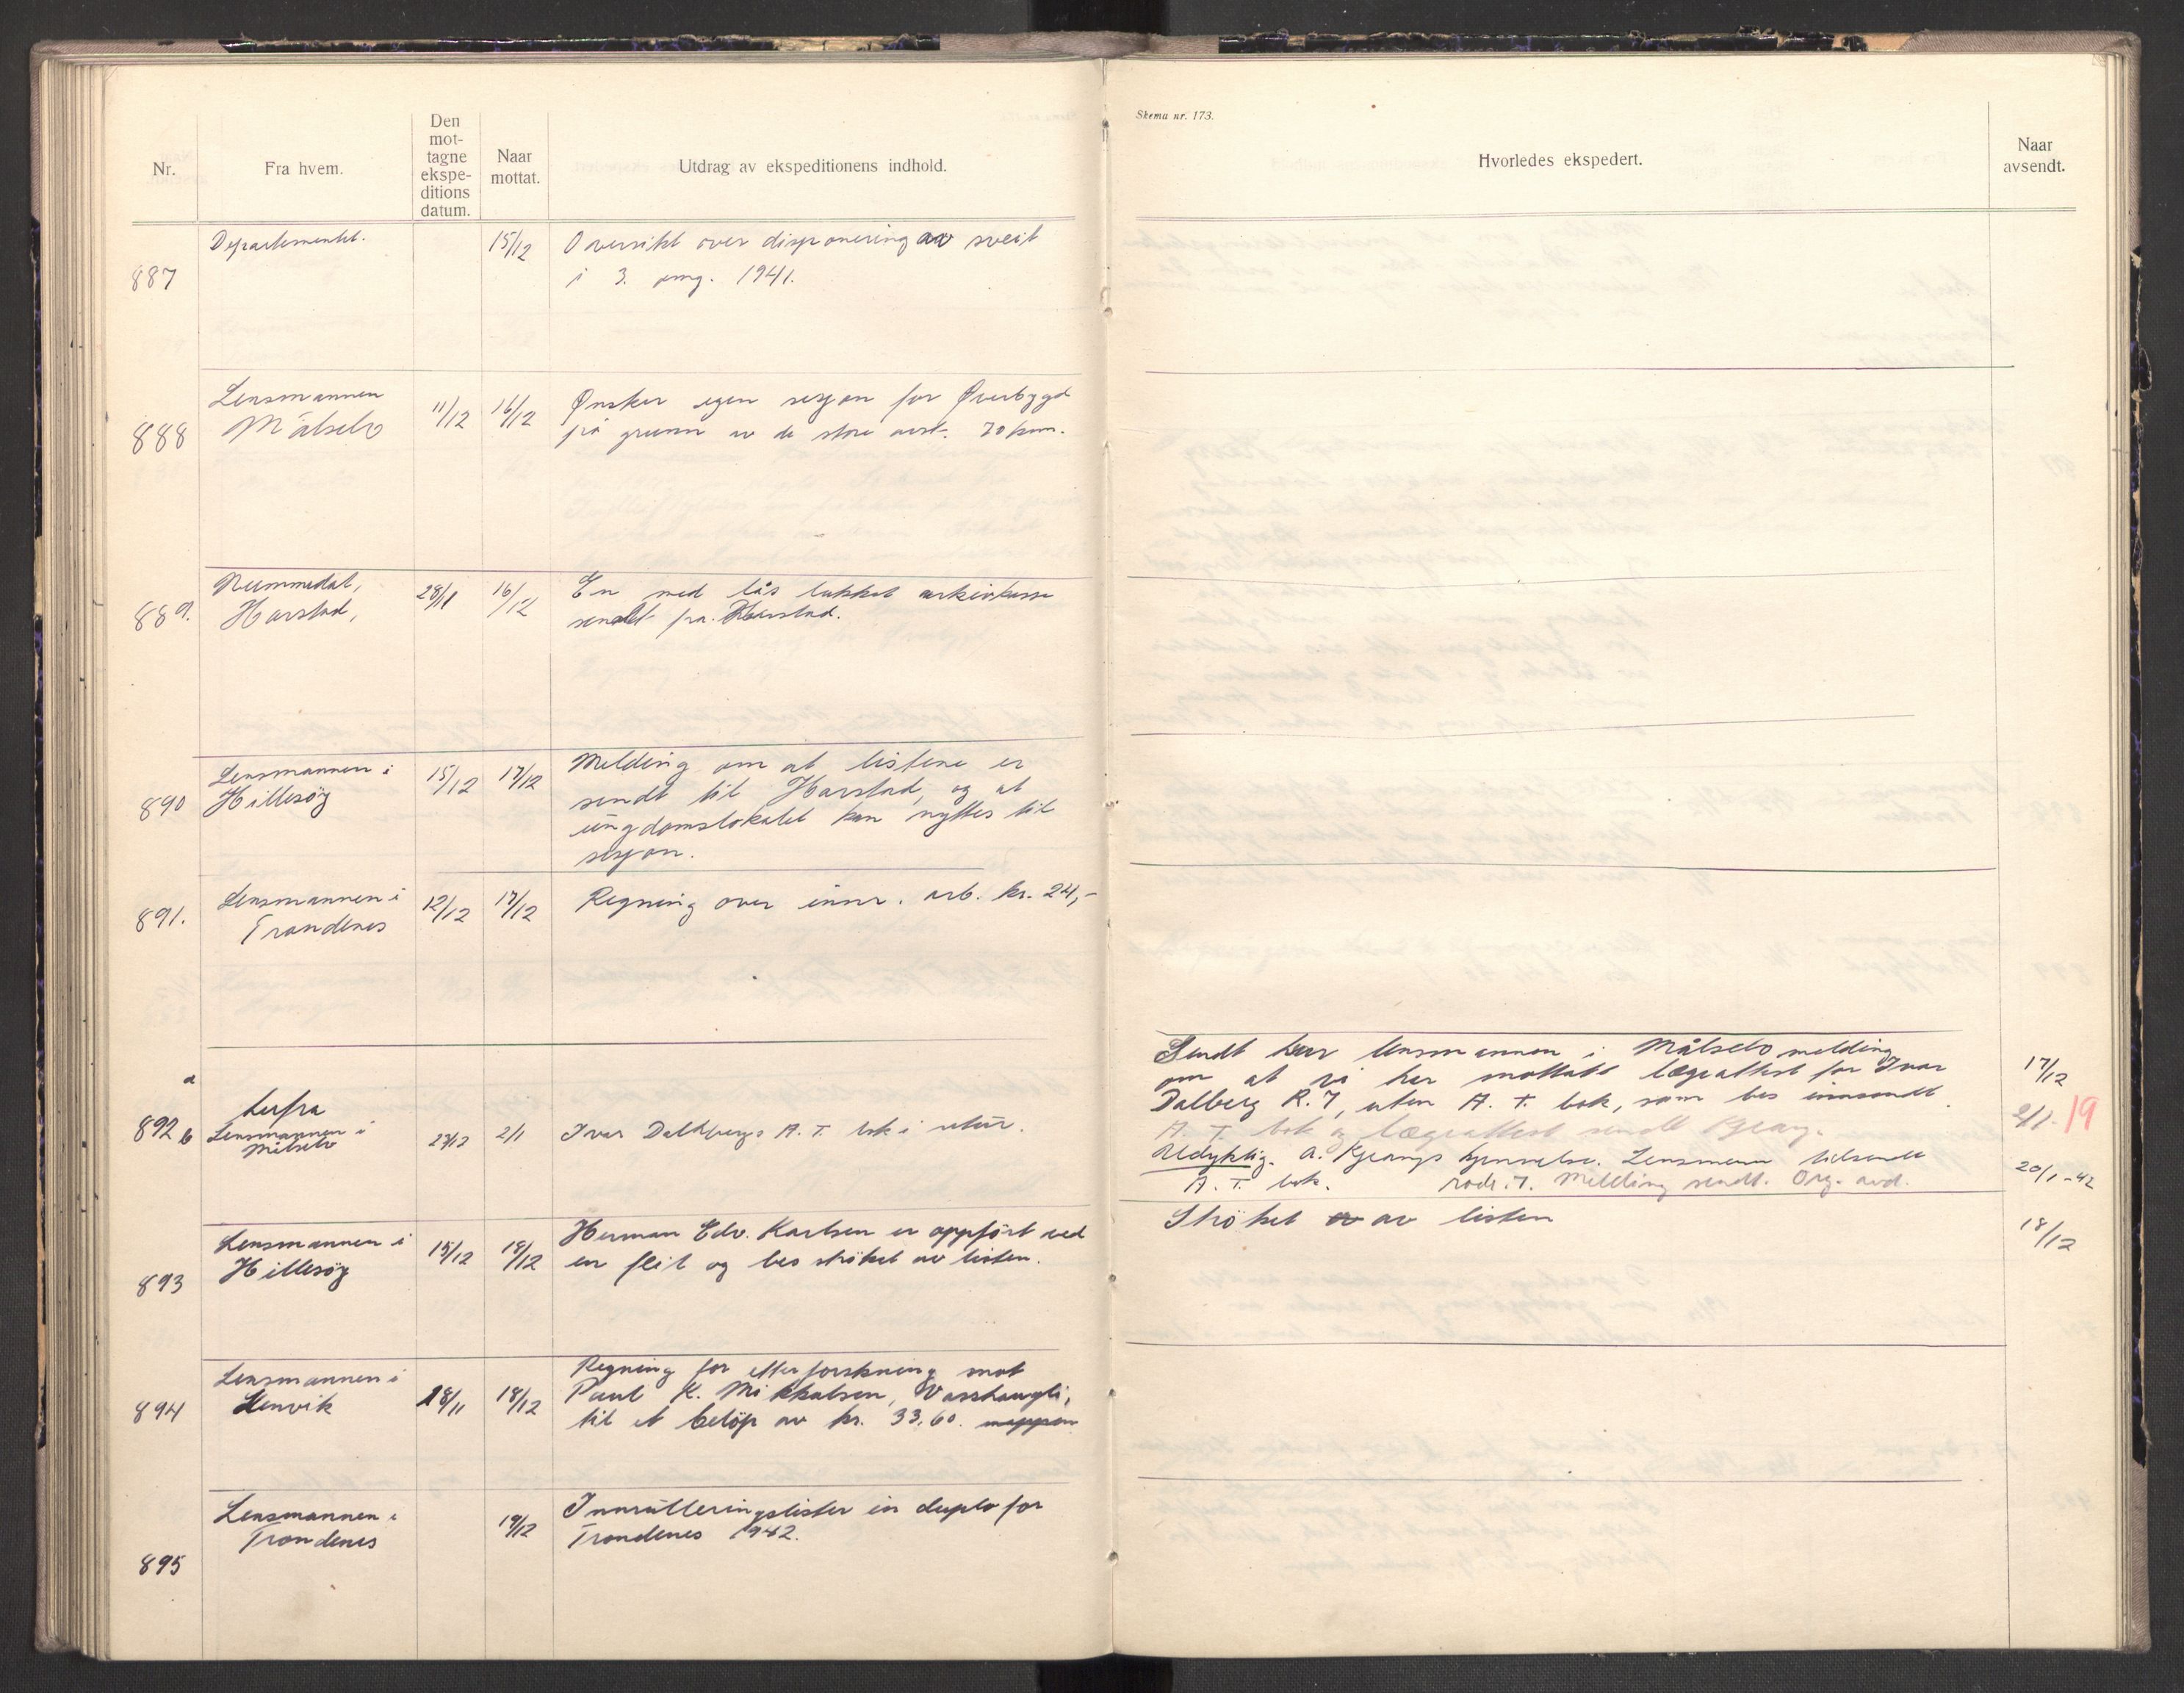 Skema nr. 173.
Nr.
Fra hvem.
Den
mot-
tagne
ekspe-
ditions
datum.
Naar
mottat.
Utdrag av ekspeditionens indhold.
Hvorledes ekspedert.
Naar
avsendt.
887
Departementet.
15/12
Oversikt over disponering av sveit
i 3. omg. 1941.
888
Lensmannen
Målselv
11/12
16/12
Ønsker egen sesjon for Øverbygd
på grunn av de store avst. 70 km.
889.
Nummedal,
Harstad,
28/11
16/12
En med lås lukket arkivkasse
sendt fra Harstad.
890
Lensmannen i
Hillesøy
15/12
17/12
Melding om at listene er
sendt til Harstad, og at
ungdomslokalet kan nyttes til
sesjon.
891.
Lensmannen i
Trondenes
12/12
17/12
Regning over innr. arb. kr. 24,-
a
892 b
herfra
Lensmannen i
Målselv
27/12
2/1
Ivar Dahlbergs A. T. bok i retur.
Sendt her lensmannen i Målselv melding
om at vi har mottatt lægeattest for Ivar
Dalberg R. 7, uten A. T. bok, som bes innsendt.
A. T. bok og lægeattest sendt Kjeang.
Udyktig. a. Kjeangs kjennelse. Lensmann tilsendt
A. T. bok. rode. 7. Melding sendt. Org. avd.
17/12
2/1. 19
20/1 - 42
893
Lensmannen i
Hillesøy
15/12
18/12
Herman Edv. Karlsen er oppført ved
en feil og bes strøket av listen.
Strøket av av listen
18/12
894
Lensmannen i
Lenvik
18/11
18/12
Regning for etterforskning mot
Paul K. Mikkalsen, Vasshaugli,
til et beløp av kr. 33,60. mappen
895
Lensmannen i
Trondenes
19/12
Innrulleringslister in duplo for
Trondenes 1942.